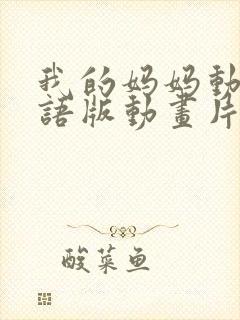 我的妈妈動
語版動畫片
酸菜鱼